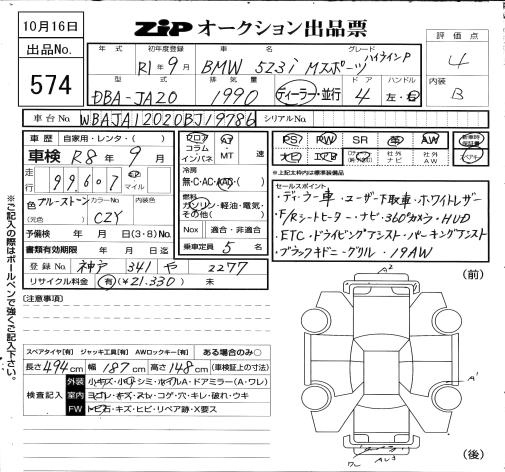 10月16日
ZiP オークション出品票
評価点
4
内装
B
出品No.
574
年式 初年度登録 車名 グレード
R1年9月 BMW 523i Mスポーツ ハイラインP
型式 排気量 ドア ハンドル
DBA-JA20 1990 ディーラー・並行 4 左・右
車台No. WBAJA12020BJ19786 シリアルNo.
車歴 自家用・レンタ・( )
車検 R8年9月
走行 99607 マイル
色 ブルーストーン カラーNo. 内装色
(元色) CZY
予備検 年 月 日(3・8)No.
書類有効期限 年 月 日
登録No. 神戸 341 や 2277
リサイクル料金 有(¥21.330) 未
フロア AT
コラム MT
インパネ 速
冷房
無・C・AC・AAC・( )
燃料
ガソリン・軽油・電気・
その他( )
Nox 適合・非適合
乗車定員 5 名
PS PW SR 革 AW 新車時保証書
ナビ エアB 社外ナビ 社外AW スペアキー
※上記太枠内は標準装備品
セールスポイント
・ディーラー車・ユーザー下取車・ホワイトレザー
・F/Rシートヒーター・ナビ・360°カメラ・HUD
・ETC・ドライビングアシスト・パーキングアシスト
・ブラックキドニーグリル・19AW
※ご記入の際はボールペンで強くご記入下さい。
(注意事項)
(前)
A2
スペアタイヤ[有] ジャッキ工具[有] AWロックキー[有] ある場合のみ○
長さ494cm 幅187cm 高さ148cm (車検証上の寸法)
検査記入
外装 小キズ・小凹・シミ・ホイルA・ドアミラー(A・ワレ)
室内 ヨゴレ・キズ・スレ・コゲ・穴・キレ・破れ・ウキ
FW トビ石・キズ・ヒビ・リペア跡・X要ス
A1
(後)